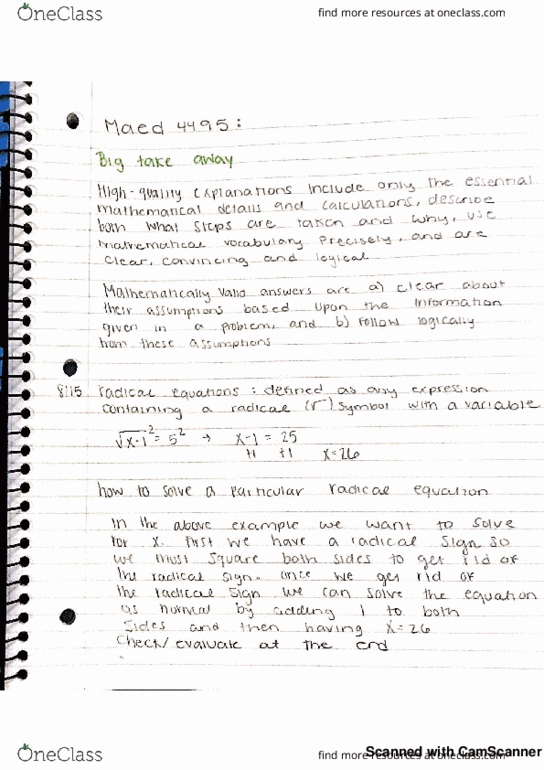 OneClass
find more resources at oneclass.com
Maed 4495:
Big take away
High-quality explanations include only the essential
mathematical details and calculations, describe
both what steps are taken and why, use
mathematical vocabulary precisely, and are
clear, convincing and logical
Mathematically valid answers are a) clear about
their assumptions based upon the information
given in a problem, and b) follow logically
from these assumptions
8/15 radical equations: defined as any expression
containing a radical (√) symbol with a variable
√x-1² = 5² → x-1 = 25
+1 +1 x=26
how to solve a particular radical equation
In the above example we want to solve
for x. First we have a radical sign so
we must square both sides to get rid of
the radical sign. once we get rid of
the radical sign we can solve the equation
as normal by adding 1 to both
sides and then having x=26
Check/evaluate at the end
OneClass
find more resources at oneclass.com
Scanned with CamScanner